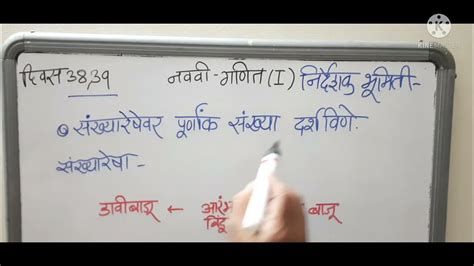 दिवस 38,39 नववी - गणित (I) निर्देशक भूमिती-
संख्यारेषेवर पूर्णांक संख्या दर्शविणे.
संख्यारेषा -
डावीबाजू ← आरंभ बाजू
बिंदू